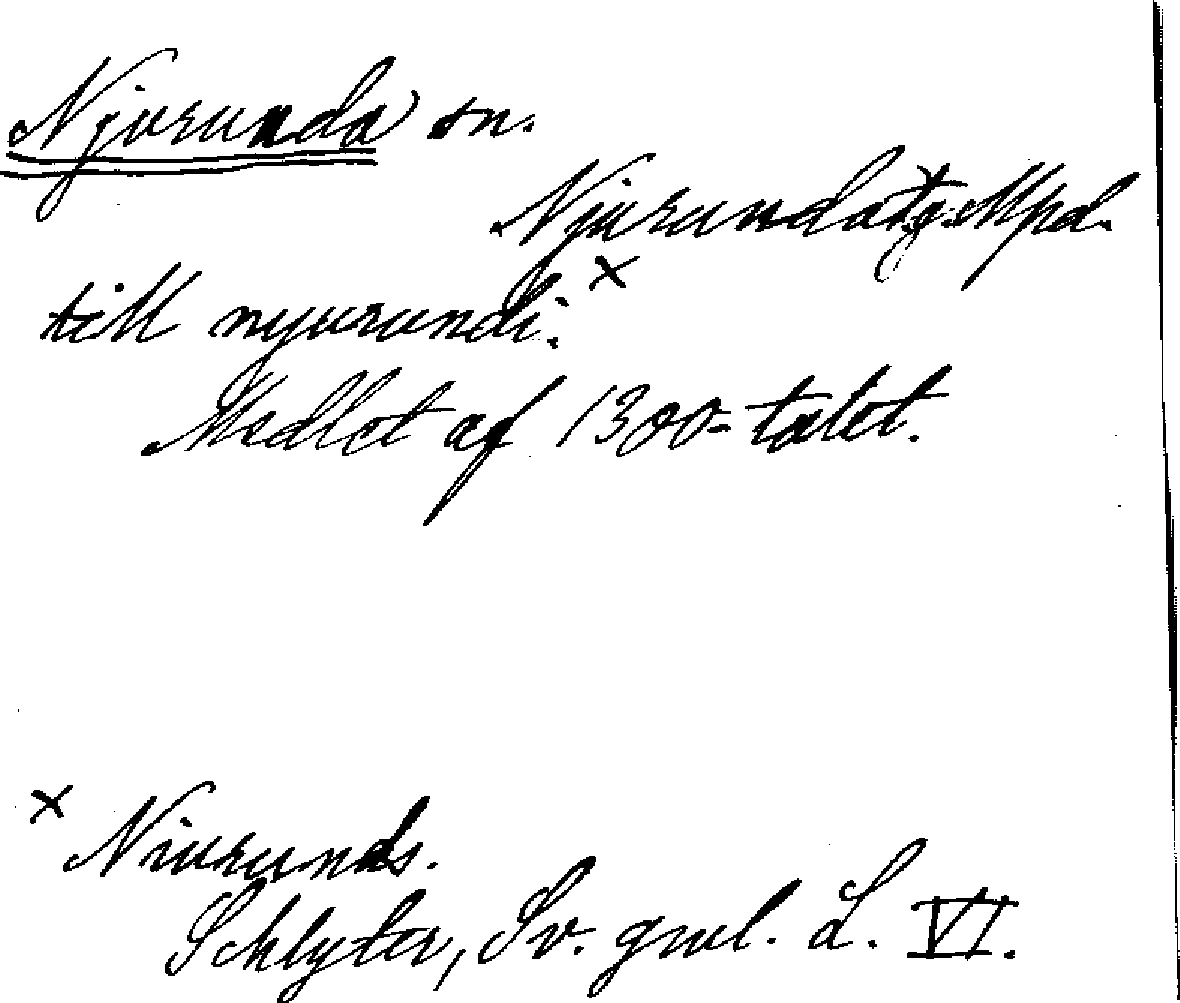 Njurunda sn.
Njurunda tg. Mpd.
till nyurundi. x
Medlet af 1300-talet.
x Niurunds.
Schlyter, Sv. gml. L. VI.